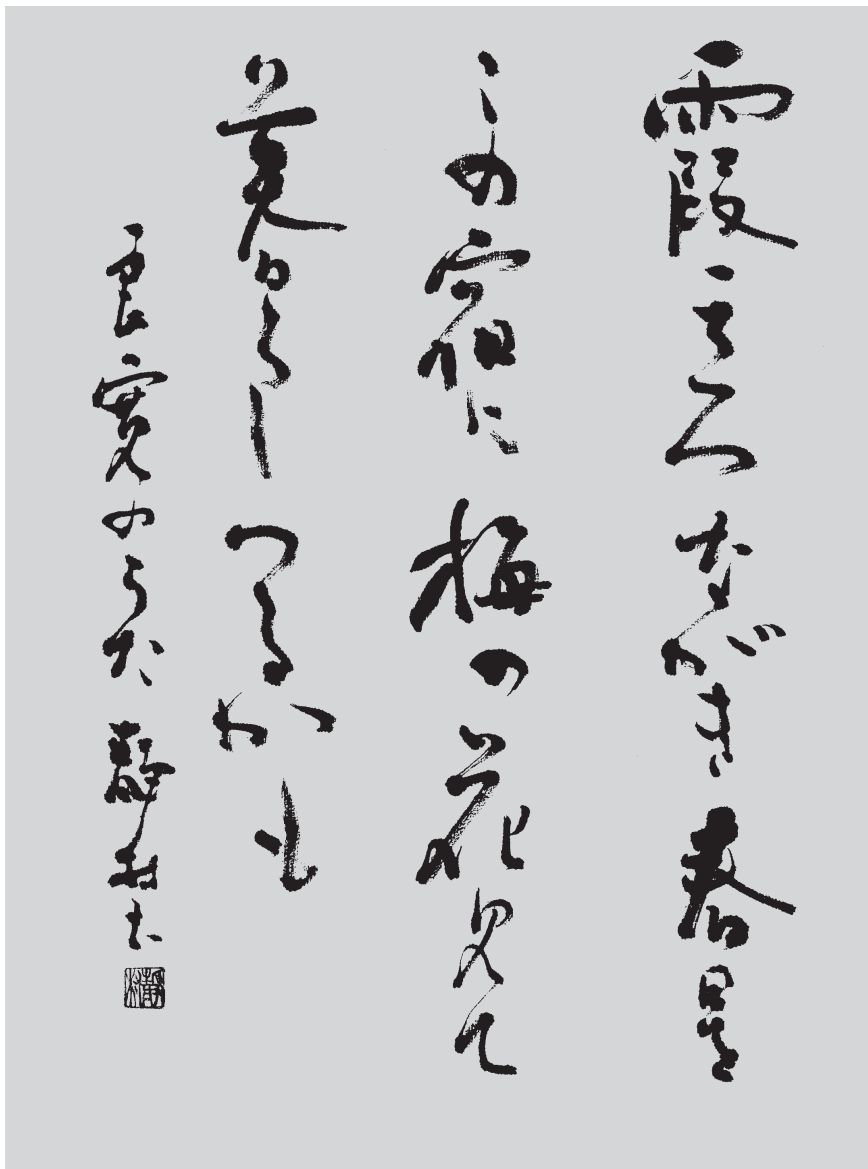 霞立つ ながき 春日を
この宿に 梅の花見て
暮らし つるかも
良寛のうた 静村書